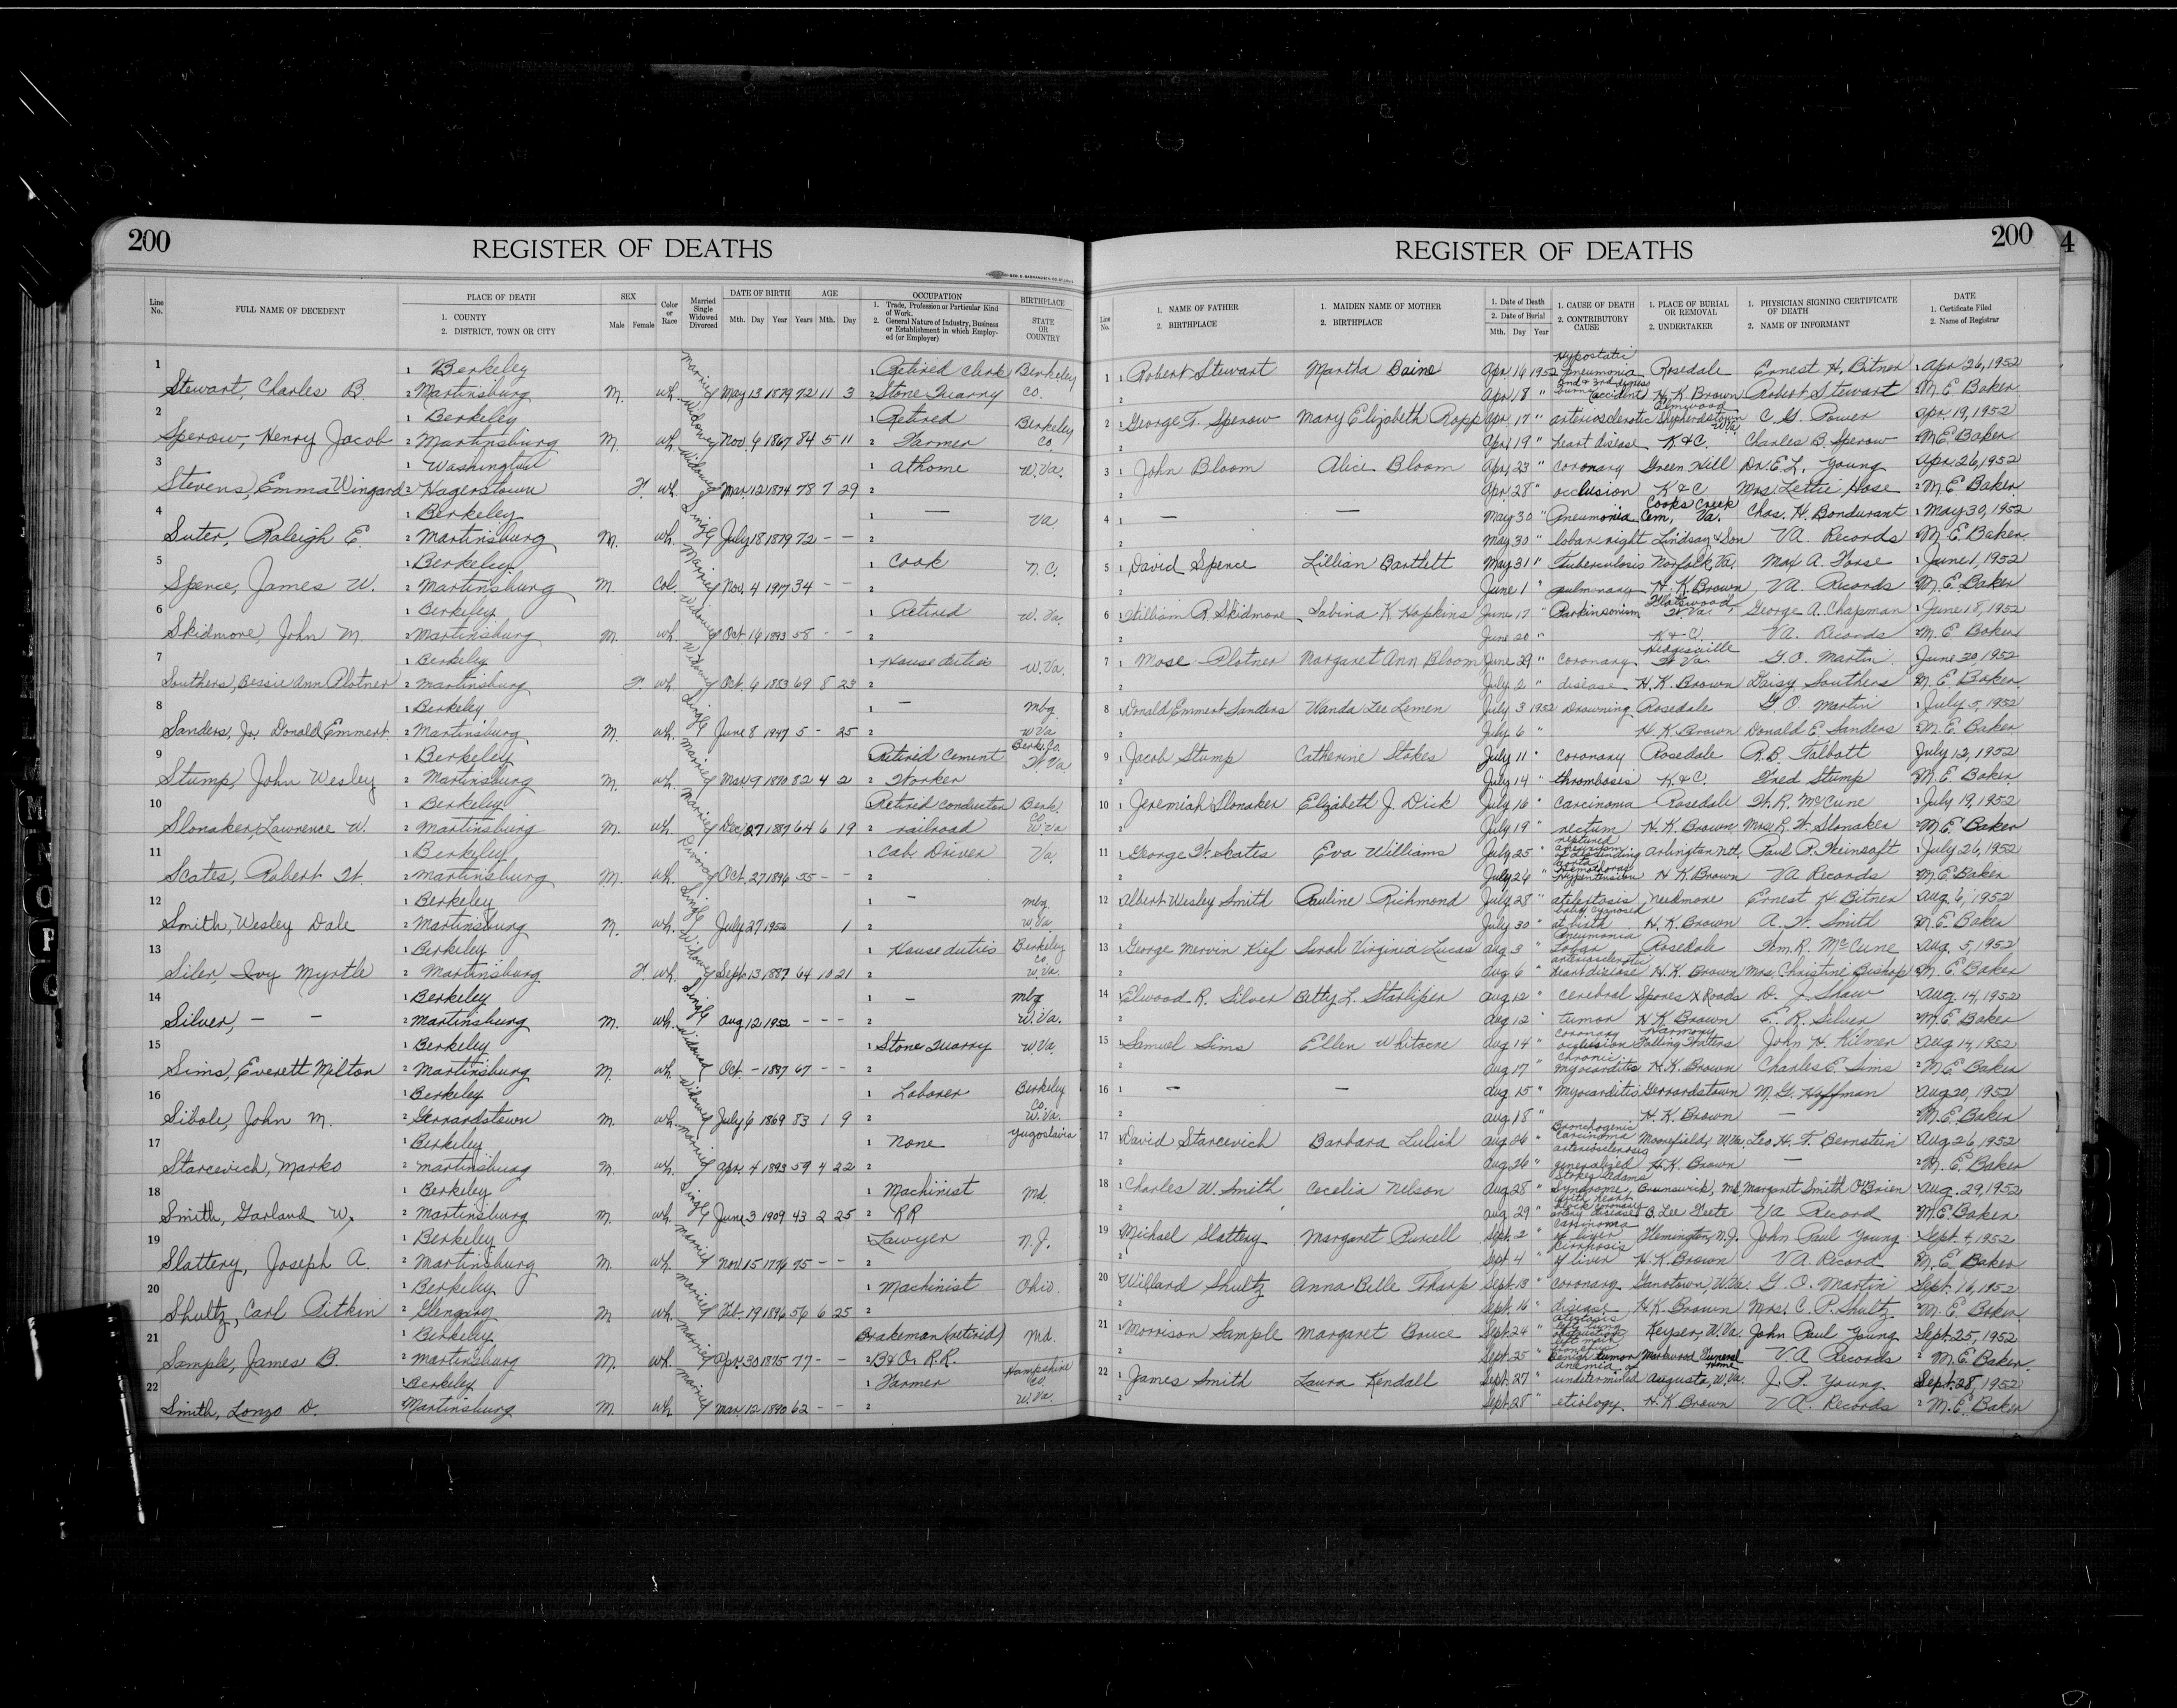 200
REGISTER OF DEATHS
Line No.
FULL NAME OF DECEDENT
PLACE OF DEATH
1. COUNTY
2. DISTRICT, TOWN OR CITY
SEX
Male Female
Color or Race
Married Single Widowed Divorced
DATE OF BIRTH
Mth. Day Year
AGE
Years Mth. Day
OCCUPATION
1. Trade, Profession or Particular Kind of Work.
2. General Nature of Industry, Business or Establishment in which Employed (or Employer)
BIRTHPLACE
STATE OR COUNTRY
1 1 Berkeley 1 Retired clerk Berkeley
Stewart, Charles B. 2 Martinsburg M. wh. Married May 13 1879 72 11 3 2 Stone Quarry Co.
2 1 Berkeley 1 Retired Berkeley
Sperow, Henry Jacob 2 Martinsburg M. wh. Widowed Nov. 6 1867 84 5 11 2 Farmer Co.
3 1 Washington 1 at home W. Va.
Stevens, Emma Wingard 2 Hagerstown F. wh. Widowed Mar. 12 1874 78 7 29 2
4 1 Berkeley 1 — Va.
Suter, Raleigh E. 2 Martinsburg M. wh. Single July 18 1879 72 – – 2
5 1 Berkeley 1 Cook N.C.
Spence, James W. 2 Martinsburg M. Col. Married Nov. 4 1917 34 – – 2
6 1 Berkeley 1 Retired W. Va.
Skidmore, John M. 2 Martinsburg M. wh. Widowed Oct. 16 1893 58 – – 2
7 1 Berkeley 1 House duties W. Va.
Southers, Bessie Ann Plotner 2 Martinsburg F. wh. Widowed Oct. 6 1883 69 8 23 2
8 1 Berkeley 1 – mbg.
Sanders, Jr. Donald Emmert 2 Martinsburg M. wh. Single June 8 1947 5 – 25 2 W Va
9 1 Berkeley Retired Cement Berk. Co. W. Va
Stump, John Wesley 2 Martinsburg M. wh. Married Mar. 9 1870 82 4 2 2 Worker
10 1 Berkeley Retired conductor Berk. Co.
Slonaker, Lawrence W. 2 Martinsburg M. wh. Married Dec. 27 1887 64 6 19 2 railroad W. Va
11 1 Berkeley 1 Cab Driver Va.
Scates, Robert H. 2 Martinsburg M. wh. Divorced Oct. 27 1896 55 – – 2
12 1 Berkeley 1 – mbg.
Smith, Wesley Dale 2 Martinsburg M. wh. Single July 27 1952 1 2 W. Va.
13 1 Berkeley 1 House duties Berkeley Co.
Siler, Ivy Myrtle 2 Martinsburg F. wh. Widowed Sept. 13 1887 64 10 21 2 W. Va.
14 1 Berkeley 1 – mbg.
Silver, – – 2 Martinsburg M. wh. Single Aug 12 1952 – – – 2 W. Va.
15 1 Berkeley 1 Stone Quarry W. Va.
Sims, Everett Milton 2 Martinsburg M. wh. Widowed Oct. – 1887 67 – – 2
16 1 Berkeley 1 Laborer Berkeley Co.
Sibole, John M. 2 Gerrardstown M. wh. Widowed July 6 1869 83 1 9 2 W. Va.
17 1 Berkeley 1 None Yugoslavia
Starcevich, Marko 2 Martinsburg M. wh. Married Apr. 4 1893 59 4 22 2
18 1 Berkeley 1 Machinist Md
Smith, Garland W. 2 Martinsburg M. wh. Single June 3 1909 43 2 25 2 RR
19 1 Berkeley 1 Lawyer N.J.
Slattery, Joseph A. 2 Martinsburg M. wh. Married Nov. 15 1776 75 – – 2
20 1 Berkeley 1 Machinist Ohio
Shultz, Carl Pitkin 2 Glengary M wh. Married Feb. 19 1896 56 6 25 2
21 1 Berkeley Brakeman (retired) Md.
Sample, James B. 2 Martinsburg M. wh. Married Apr. 30 1875 77 – – 2 B&O. R.R.
22 1 Berkeley 1 Farmer Hampshire Co.
Smith, Lonzo D. Martinsburg M. wh. Married Mar. 12 1890 62 – – 2 W. Va.
REGISTER OF DEATHS
200
4
Line No.
1. NAME OF FATHER
2. BIRTHPLACE
1. MAIDEN NAME OF MOTHER
2. BIRTHPLACE
1. Date of Death
2. Date of Burial
Mth. Day Year
1. CAUSE OF DEATH
2. CONTRIBUTORY CAUSE
1. PLACE OF BURIAL OR REMOVAL
2. UNDERTAKER
1. PHYSICIAN SIGNING CERTIFICATE OF DEATH
2. NAME OF INFORMANT
DATE
1. Certificate Filed
2. Name of Registrar
1 1 Robert Stewart Martha Baine Apr. 16 1952 Hypostatic pneumonia Rosedale Ernest H. Bitner 1 Apr 26, 1952
2 Apr 18 " 2nd & 3rd degree burns (accident) H. K. Brown Robert Stewart 2 M. E. Baker
2 1 George F. Sperow Mary Elizabeth Ropp Apr. 17 " arteriosclerotic Elmwood Shepherdstown W. Va. C. G. Power Apr 19, 1952
2 Apr. 19 " heart disease K & C. Charles B. Sperow 2 M. E. Baker
3 1 John Bloom Alice Bloom Apr. 23 " coronary Green Hill Dr. E. L. Young Apr. 26, 1952
2 Apr. 28 " occlusion K & C Mrs. Lettie Hose 2 M. E. Baker
4 1 – – May 30 " Pneumonia Cooks Creek Cem. Va. Chas. H. Bondurant 1 May 30, 1952
2 May 30 " lobar right Lindsay & Son VA. Records 2 M. E. Baker
5 1 David Spence Lillian Bartlett May 31 " Tuberculosis Norfolk, Va. Max A. 1 June 1, 1952
2 June 1 " pulmonary H. K. Brown VA. Records 2 M. E. Baker
6 1 William R. Skidmore Sabina K. Hopkins June 17 " Parkinsonism Flatwood, W. Va. George A. Chapman 1 June 18, 1952
2 June 20 " K & C. VA. Records 2 M. E. Baker
7 1 Mose Plotner Margaret Ann Bloom June 29 " coronary Hedgesville W. Va. G. O. Martin June 30, 1952
2 July 2 " disease H. K. Brown Daisy Southers 2 M. E. Baker
8 1 Donald Emmert Sanders Wanda Lee Lemen July 3 1952 Drowning Rosedale G. O. Martin 1 July 5, 1952
2 July 6 " H. K. Brown Donald E. Sanders 2 M. E. Baker
9 1 Jacob Stump Catherine Stokes July 11 " coronary Rosedale R. B. Talbott July 12, 1952
2 July 14 " thrombosis K & C. Fred Stump 2 M. E. Baker
10 1 Jeremiah Slonaker Elizabeth J. Dick July 16 " carcinoma Rosedale W. R. McCune 1 July 19, 1952
2 July 19 " rectum H. K. Brown Mrs. L. W. Slonaker 2 M. E. Baker
11 1 George W. Scates Eva Williams July 25 " ruptured aneurism of descending aorta Arlington Natl. Paul P. Weinsaft 1 July 26, 1952
2 July 26 " Hemothorax hypertension H. K. Brown VA Records 2 M. E. Baker
12 1 Albert Wesley Smith Pauline Richmond July 28 " atelectasis Neckmore Ernest H Bitner Aug. 6, 1952
2 July 30 " baby cyanosed at birth H. K. Brown A. W. Smith 2 M. E. Baker
13 1 George Mervin Kief Sarah Virginia Lucas Aug 3 " Pneumonia Lobar Rosedale Wm. R. McCune Aug. 5, 1952
2 Aug 6 " arteriosclerotic heart disease H. K. Brown Mrs. Christine Bishop 2 M. E. Baker
14 1 Elwood R. Silver Betty L. Starliper Aug 12 " cerebral Spores X Roads D. J. Shaw Aug. 14, 1952
2 Aug 12 " tumor H. K. Brown E. R. Silver 2 M. E. Baker
15 1 Samuel Sims Ellen Whitacre Aug 14 " coronary occlusion Harmony Falling Waters John H. Kilmer Aug 14, 1952
2 Aug 17 " chronic myocarditis H. K. Brown Charles E. Sims 2 M. E. Baker
16 1 – – Aug 15 " Myocarditis Gerrardstown M. G. Hoffman Aug 20, 1952
2 Aug 18 " H. K. Brown – M. E. Baker
17 1 David Starcevich Barbara Lulich Aug 26 " Bronchogenic carcinoma Moorefield, W. Va. Leo H. F. Bernstein Aug 26, 1952
2 Aug 26 " arteriosclerosis generalized H. K. Brown – 2 M. E. Baker
18 1 Charles W. Smith Cecelia Nelson Aug 28 " Stokes Adams Syndrome Brunswick, Md. Margaret Smith O'Brien Aug. 29, 1952
2 Aug 29 " with heart block coronary artery disease C. Lee Feete VA Record M. E. Baker
19 1 Michael Slattery Margaret Purcell Sept. 2 " carcinoma of liver Flemington, N.J. John Paul Young Sept. 4, 1952
2 Sept 4 " cirrhosis of liver H. K. Brown VA. Record 2 M. E. Baker
20 1 Willard Shultz Anna Belle Tharp Sept. 13 " coronary Ganotown, W. Va. G. O. Martin Sept. 16, 1952
2 Sept. 16 " disease H. K. Brown Mrs. C. P. Shultz 2 M. E. Baker
21 1 Morrison Sample Margaret Bruce Sept. 24 " left lung obstruction left main Keyser, W. Va. John Paul Young Sept. 25, 1952
2 Sept. 25 " bronchus benign tumor Markwood Funeral Home VA Records 2 M. E. Baker
22 1 James Smith Laura Kendall Sept. 27 " anemia of undetermined Augusta, W. Va. J. P. Young Sept. 28, 1952
2 Sept. 28 " etiology H. K. Brown VA. Records 2 M. E. Baker